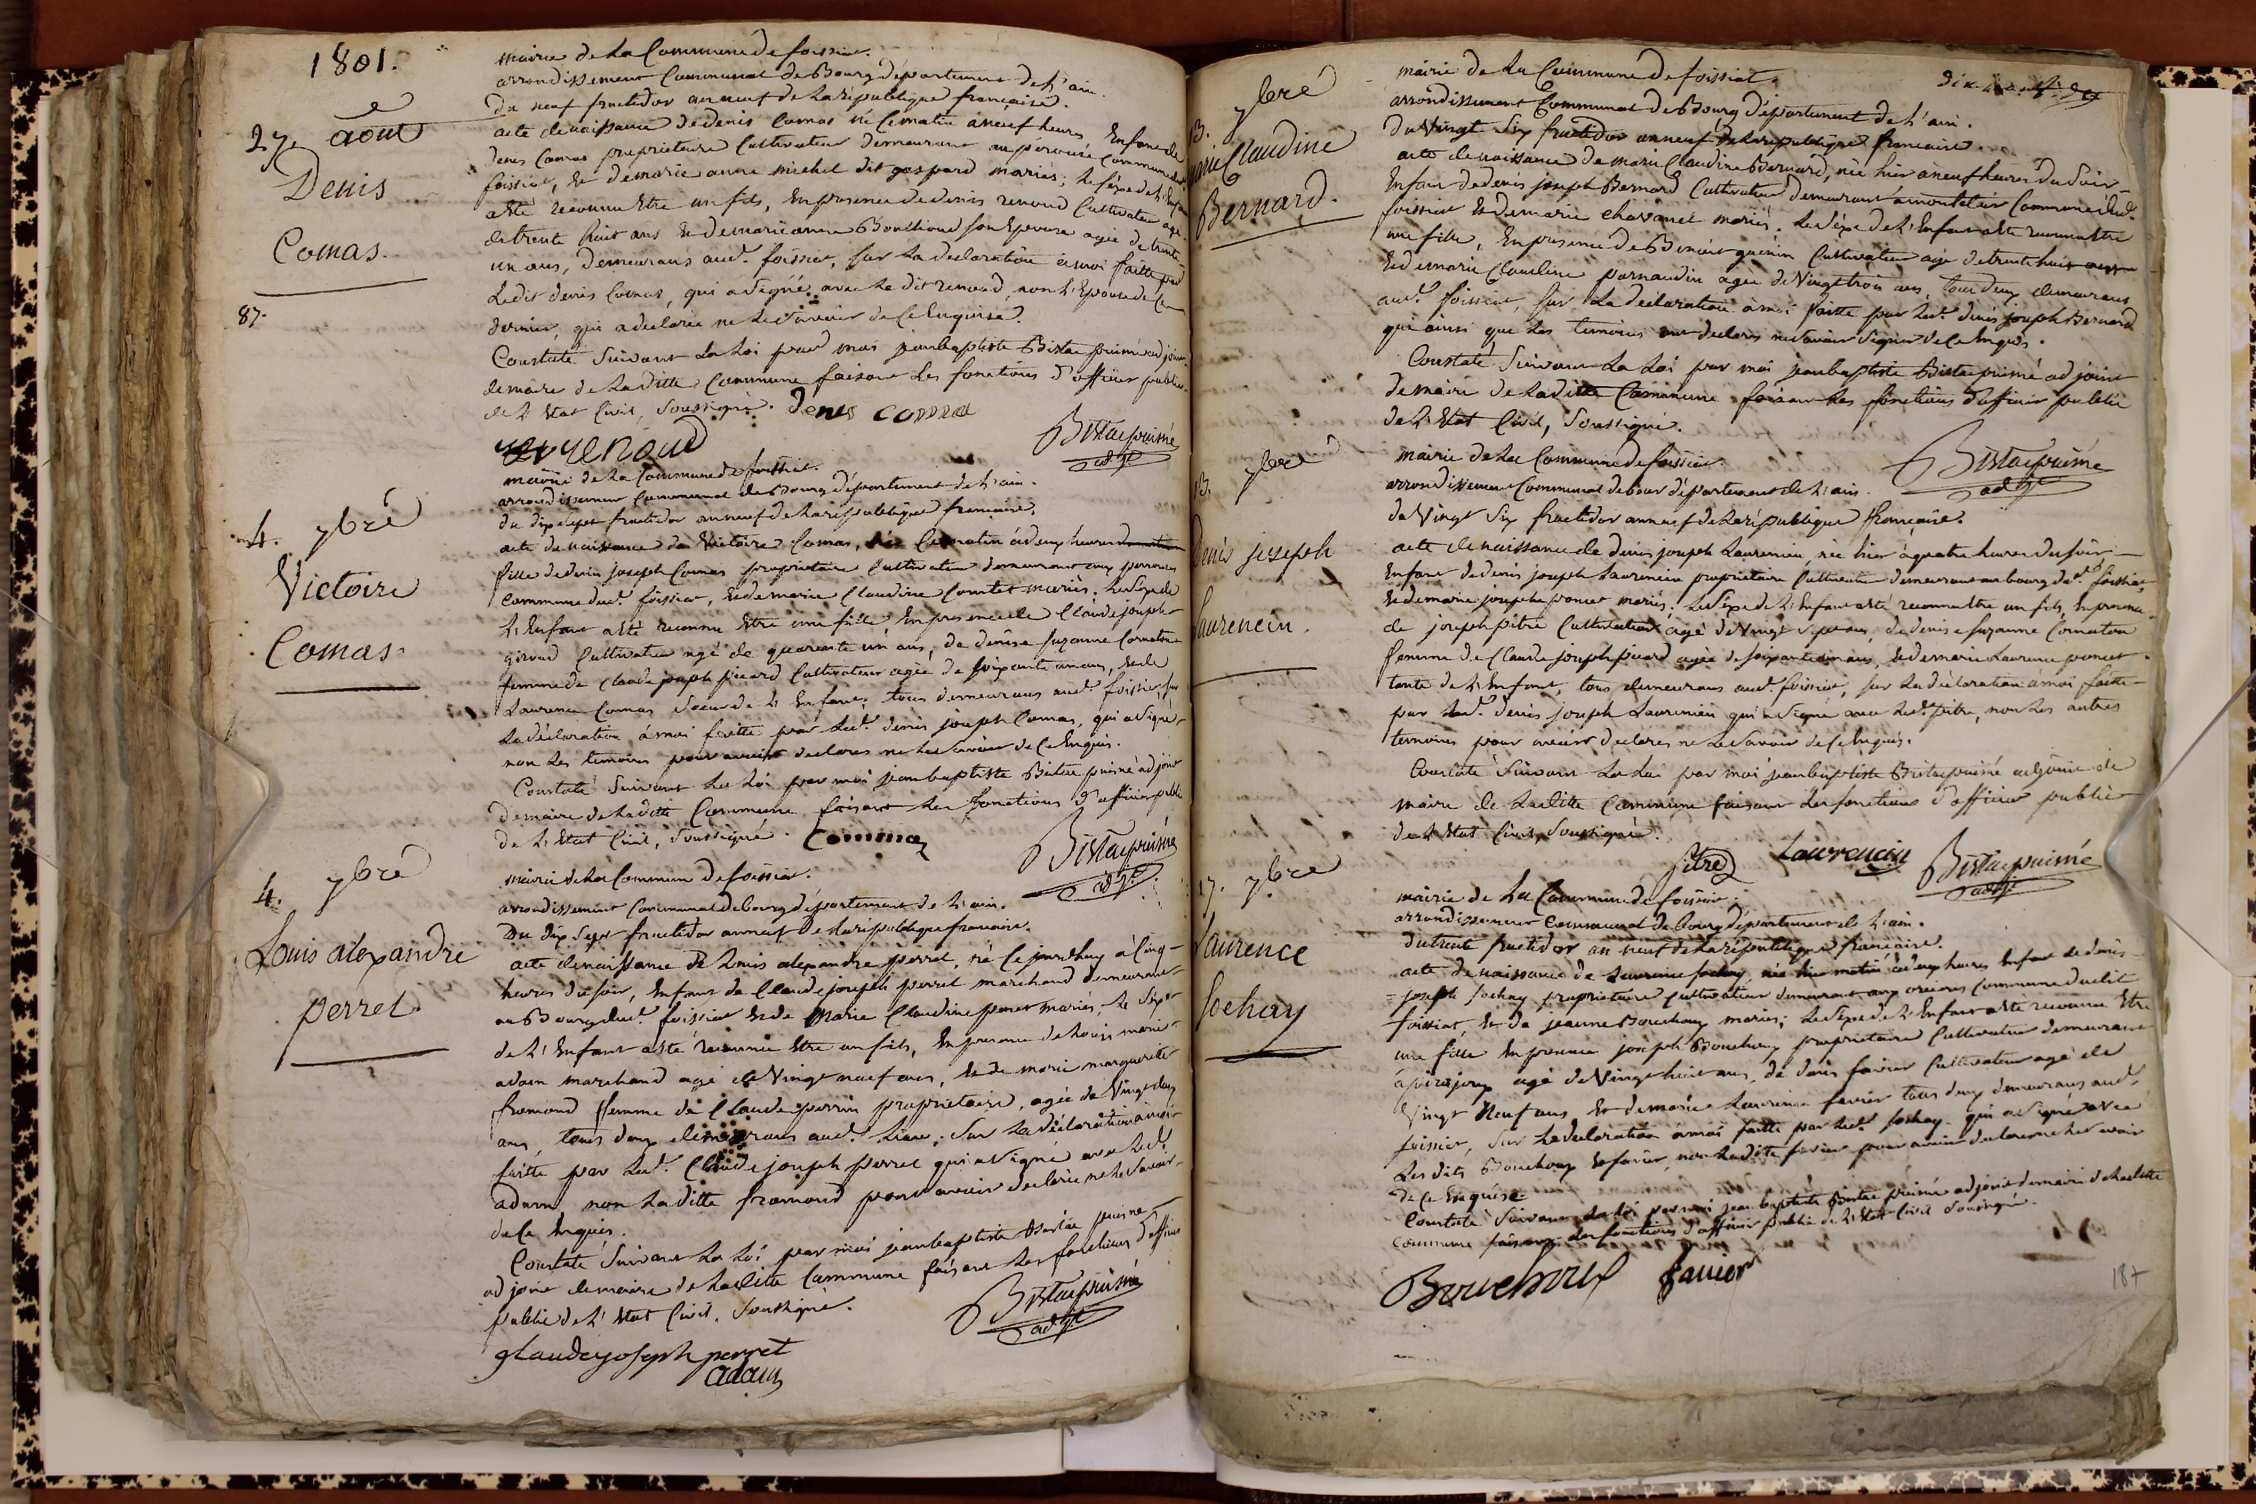 1801.
27. août
Denis
Comas.
87.
mairie de la Commune de foissiat.
arrondissement Communal de Bourg département de l'ain.
du neuf fructidor an neuf de la république française.
acte de naissance de denis Comas né ce matin à neuf heures Enfant de
denis Comas propriétaire Cultivateur demeurant au commune dud.
foissiat, Et de marie anne michel dit gaspard mariés; le sexe de l'Enfant
a été reconnu Etre un fils, En presence de denis renoud Cultivateur agé
de trente huit ans Et de marie anne Bouilloud son Epouse agée de trente
un ans, demeurans aud. foissiat, sur la declaration à moi faitte par
Ledit denis Comas, qui a signé avec le dit renoud, non l'Epouse de Ce
dernier qui a declarée ne le savoir de Ce Enquise.
Constaté Suivant la Loi par moi jean baptiste puisné adjoint
de maire de la ditte Commune faisant les fonctions d'officier public
de L'Etat Civil, soussigné. denis comas
renoud puisné adjt
4. 7bre
Victoire
Comas.
mairie de la Commune de foissiat.
arrondissement Communal de Bourg département de l'ain.
du dix sept fructidor an neuf de la république française.
acte de naissance de Victoire Comas, née Ce matin à deux heures
fille de denis joseph Comas propriétaire Cultivateur demeurant aux
Commune dud. foissiat, Et de marie Claudine Comtet mariés. Le sexe de
L'Enfant a été reconnu Etre une fille En presence de Claude joseph
giroud Cultivateur agé de quarante un ans, de denise suzanne Cornaton
femme de Claude joseph picard Cultivateur agée de soixante un ans, Et de
Laurence Comas Soeur de L'Enfant, tous demeurans aud. foissiat, sur
la déclaration à moi faitte par Led. denis joseph Comas, qui a signé
non les temoins pour avoir declarés ne le savoir de Ce Enquis.
Constaté Suivant La Loi par moi jean baptiste puisné adjoint
de maire de la ditte Commune faisant les fonctions d'officier public
de L'Etat Civil, soussigné. Commas
puisné adjt
4. 7bre
Louis alexandre
perret
mairie de la Commune de foissiat.
arrondissement Communal de bourg département de l'ain.
Du dix sept fructidor an neuf de la republique française.
acte de naissance de Louis alexandre perret, né Ce jourdhuy à Cinq
heures du soir, Enfant de Claude joseph perret marchand demeurant
au Bourg dud. foissiat Et de Marie Claudine mariés, Le Sexe
de L'Enfant a été reconnu Etre un fils, En presence de Louis marie
adam marchand agé de Vingt neuf ans, Et de marie marguerite
fromond femme de Claude perrin propriétaire, agée de Vingt deux
ans, tous deux demeurans aud. Lieu; Sur la déclaration à moi
faitte par Led. Claude joseph perret qui a signé avec led.
adam, non la ditte fromond pour avoir declarée ne le savoir
de Ce Enquis.
Constaté Suivant La Loi par moi jean baptiste puisné
adjoint de maire de la ditte Commune faisant les fonctions d'officier
public de L'Etat Civil, Soussigné.
puisné adjt
glaude joseph perret
adam
13. 7bre
marie Claudine
Bernard.
mairie de la Commune de foissiat.
arrondissement Communal de Bourg département de l'ain.
du Vingt Six fructidor an neuf de la république française.
acte de naissance de marie Claudine Bernard, née hier à neuf heures du Soir
Enfant de denis joseph Bernard Cultivateur demeurant à Commune dud.
foissiat Et de marie chavanel mariés. Le Sexe de L'Enfant a été reconnu Etre
une fille, En presence de Benoit guénin Cultivateur agé de trente huit ans
Et de marie Claudine parnaudin agée de Vingt trois ans, tous deux demeurans
aud. foissiat, sur la declaration à moi faitte par Led. denis joseph Bernard
qui ainsi que les temoins ont declarés ne savoir signer de Ce Enquis.
Constaté Suivant La Loi par moi jean baptiste puisné adjoint
de maire de La ditte Commune faisant Les fonctions d'officier public
de L'Etat Civil, Soussigné.
puisné adjt
13. 7bre
Denis joseph
Laurencin.
mairie de La Commune de foissiat.
arrondissement Communal de bour département de L'ain
du Vingt Six fructidor an neuf de la république française.
acte de naissance de denis joseph Laurencin, né hier à quatre heures du soir
Enfant de denis joseph Laurencin propriétaire Cultivateur demeurant au bourg dud. foissiat,
Et de marie josephe poncet mariés; Le Sexe de L'Enfant a été reconnu Etre un fils, En presence
de joseph pitre Cultivateur agé de Vingt sept ans, de denise suzanne Cornaton
femme de Claude joseph picard agée de soixante un ans, Et de marie Laurence poncet
tante de L'Enfant, tous demeurans aud. foissiat, sur la déclaration à moi faitte
par Led. denis joseph Laurencin qui a signé avec led. pitre, non Les autres
temoins pour avoir declarés ne le savoir de Ce Enquis.
Constaté Suivant La Loi par moi jean baptiste puisné adjoint de
maire de La ditte Commune faisant Les fonctions d'officier public
de L'Etat Civil, soussigné.
pitre Laurencin puisné adjt
17. 7bre
Laurence
sochay
mairie de La Commune de foissiat.
arrondissement Communal de bourg département de l'ain.
du trente fructidor an neuf de la république française.
acte de naissance de Laurence sochay née hier matin à deux heures Enfant de denis
joseph sochay propriétaire Cultivateur demeurant aux Commune dudit
foissiat, Et de jeanne Bouchoux mariés; Le Sexe de L'Enfant a été reconnu Etre
une fille En presence joseph Bouchoux propriétaire Cultivateur demeurant
à agé de Vingt huit ans, de denis favier Cultivateur agé de
Vingt Neuf ans Et de marie Laurence favier tous deux demeurans aud.
foissiat, sur La declaration à moi faitte par led. sochay qui a signé avec
Les dits Bouchoux Et favier, non La dite favier pour avoir declaré ne le savoir
de Ce Enquise
Constaté Suivant La Loi par moi jean baptiste puisné adjoint de maire de La ditte
Commune faisant Les fonctions d'officier public de L'Etat Civil Soussigné.
Bouchoux favier
187